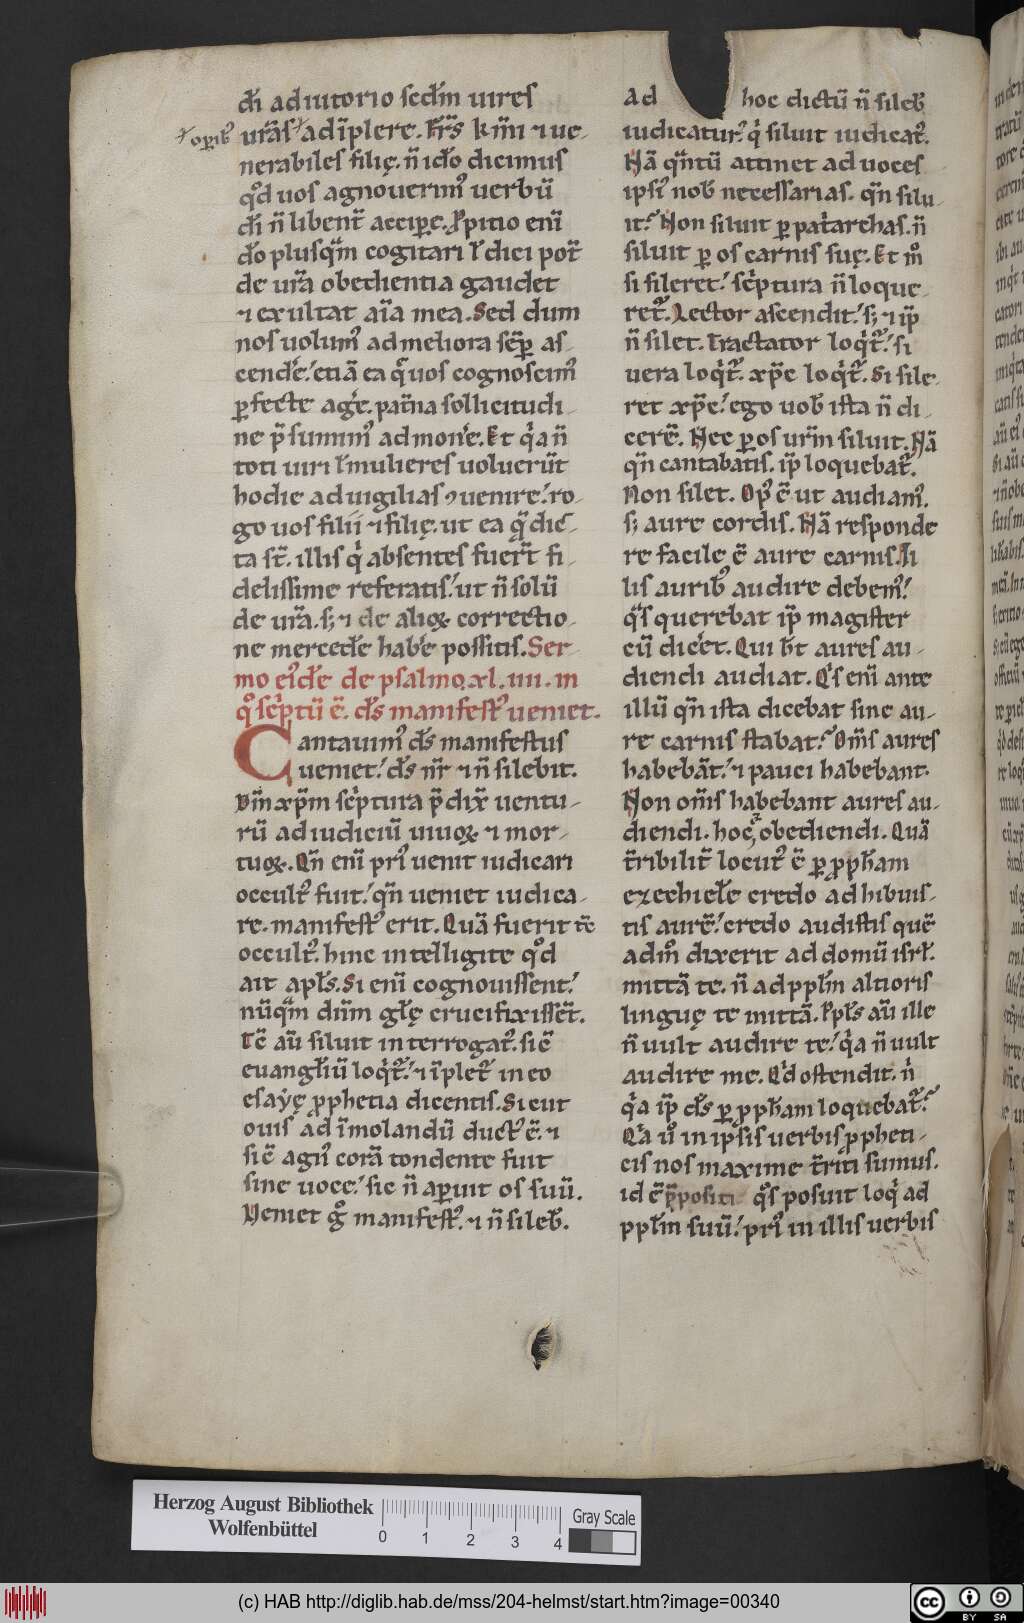 dī adiutorio secdm uires
oꝑib᷒
urās adīplere. Frs kmi ⁊ ue-
nerabiles filię. n̄ ido dicimus
qd uos agnouerim᷒ uerbū
dī n̄ libent̄ accipe. ꝓpitio enī
do plusqm cogitari ł dici pot̄
de urā obedientia gaudet
⁊ exultat aīa mea. Sed dum
nos uolum᷒ ad meliora sēꝑ as-
cende. etiā ea q uos cognoscim᷒
ꝑfecte age. pat̄na sollicitudi-
ne p̄sumim᷒ admone. Et qa n̄
toti uiri ł mulieres uoluerūt
hodie ad uigilias ꝯuenire. ro-
go uos filii ⁊ filię. ut ea q̄ dic-
ta st̄. illis q absentes fuer̄t fi-
delissime referatis. ut n̄ solū
de urā. s; ⁊ de alioꝝ correctio-
ne mercede habe possitis. Ser-
mo ei᷒de de psalmo. xl. iiii. in
qo scptū ē. ds manifest᷒ ueniet.
Cantauim᷒ ds manifestus
ueniet. ds nr̄ ⁊ n̄ silebit.
Dn̄m xp̄m scptura p̄dix̄ uentu-
rū ad iudiciū uiuoꝝ ⁊ mor-
tuoꝝ. Qn̄ enī pri᷒ uenit iudicari
occult᷒ fuit. qn̄ ueniet iudica-
re. manifest᷒ erit. Quā fuerit tē
occult᷒. hinc intelligite qd
ait apls. Si enī cognouissent.
nūqm dūm glę crucifixissēt.
Tē aū siluit interrogat᷒. sic̄
euangliū loqt̄. ⁊ īplet̄ in eo
esayę ꝓphetia dicentis. Sicut
ouis ad īmolandū duct᷒ ē. ⁊
sic̄ agn᷒ corā tondente fuit
sine uoce. sic n̄ aꝑuit os suū.
Veniet go manifest᷒. ⁊ n̄ sileb.
Ad hoc dictū n̄ sileb
iudicatur. q siluit iudicat᷒.
Nā qntū attinet ad uoces
ipsi᷒ nob necessarias. qn̄ silu-
it. Non siluit ꝑ patarchas. n̄
siluit ꝑ os carnis suę. Et mo
si sileret. scptura n̄ loque-
ret. Lector ascendit. s; ⁊ ip̄
n̄ silet. Tractator loqt̄. si
uera loqt̄. xp̄c loqt̄. Si sile-
ret xp̄c. ego uob ista n̄ di-
cerē. Nec ꝑ os urm siluit. Nā
qn̄ cantabatis. ip̄ loquebat̄.
Non silet. Op᷒ ē ut audiam᷒.
s; aure cordis. Nā responde
re facile ē aure carnis. Il
lis aurib᷒ audire debem᷒.
qs querebat ip̄ magister
cū dicet. Qui ht aures au-
diendi audiat. Qs enī ante
illū qn̄ ista dicebat sine au-
re carnis stabat. Om̄s aures
habebāt. ⁊ pauci habebant.
Non om̄s habebant aures au-
diendi. hoc ē, obediendi. Quā
t̄ribilit̄ locut᷒ ē ꝑ ꝓpham
ezechiele credo adhibuis-
tis aurē. credo audistis quē
admo dixerit ad domū isrl.
mittā te. n̄ ad pplm altioris
linguę te mittā. Ppls aū ille
n̄ uult audire te. qa n̄ uult
audire me. Qd ostendit. n̄
qa ip̄ ds ꝑ ꝓpham loquebat̄.
Qa uo in ipsis uerbis ꝓpheti-
cis nos maxime t̄riti sumus.
id ē p̄positi qs posuit loq ad
pplm suū. pri᷒ in illis uerbis
Herzog August Bibliothek
Wolfenbüttel
0 1 2 3 4
Gray Scale
(c) HAB http://diglib.hab.de/mss/204-helmst/start.htm?image=00340
cc BY SA